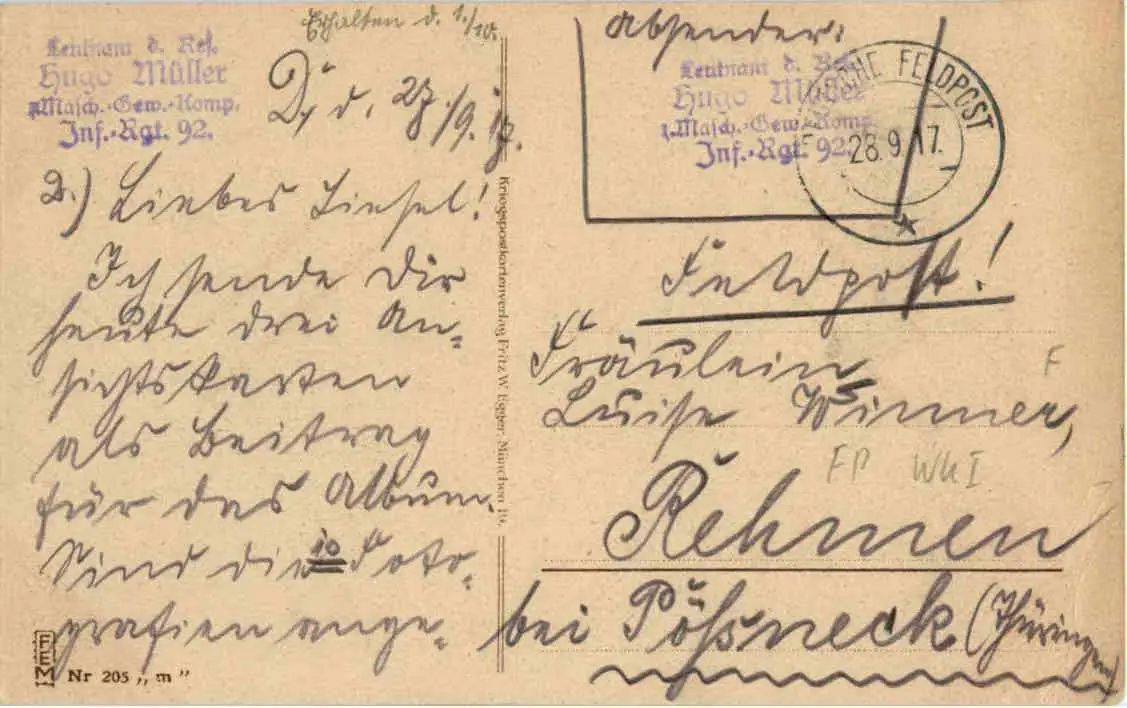 Erhalten d. 1./10.
Leutnam d. Res.
Hugo Müller
1. Masch.-Gew.-Komp.
Inf.-Rgt. 92.
D., d. 27./9.17.
2.) Liebes Liesel!
Ich sende Dir
heute drei An-
sichtskarten
als Beitrag
für das Album.
Sind die 10 Foto-
grafien ange-
FEM
Nr 205 „m"
Kriegspostkartenverlag Fritz W. Egger, München 19.
Absender:
Leutnam d. Res.
Hugo Müller
1. Masch.-Gew.-Komp.
Inf.-Rgt. 92.
FELDPOST
28.9.17.
Feldpost!
Fräulein
Luise Winner,
Rehmen
bei Pößneck (Thüringen)
F
FP WKI